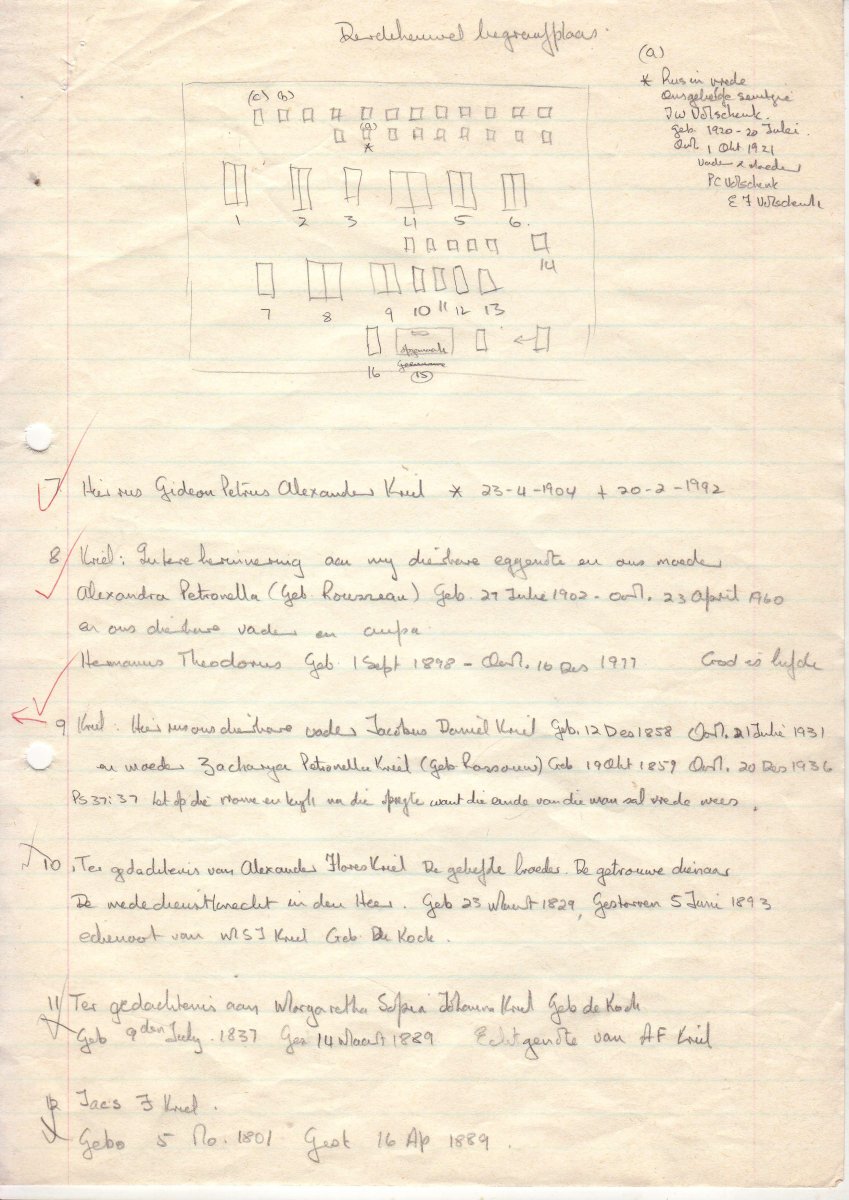 Derdeheuwel begraafplaas.
(a)
* Rus in vrede
ons geliefde seuntjie
JW Volschenk.
geb. 1920-20 Julei.
Oorl. 1 Okt 1921
vader & moeder
PC Volschenk
E J Volschenk
(c) (b)
(a)
*
1 2 3 4 5 6.
14
7 8 9 10 11 12 13
16 (15)
7 Hier rus Gideon Petrus Alexander Kriel * 23-4-1904 + 20-2-1992
8 Kriel: In tere herinnering aan my dierbare eggenote en ons moeder
Alexandra Petronella (Geb Rousseau) Geb. 27 Julie 1902 - Oorl. 23 April 1960
en ons dierbare vader en oupa
Hermanus Theodorus Geb 1 Sept 1898 - Oorl. 16 Des 1977 God is liefde
9 Kriel: Hier rus ons dierbare vader Jacobus Daniel Kriel Geb. 12 Des 1858 Oorl. 21 Julie 1931
en moeder Zacharya Petronella Kriel (Geb Rossouw) Geb 19 Okt 1859 Oorl. 20 Des 1936
Ps 37:37 Let op die vrome en kyk na die opregte want die einde van die man sal vrede wees.
10 Ter gedachtenis van Alexander Flores Kriel De geliefde broeder. De getrouwe dienaar
De mededienstknecht in den Heer. Geb 23 Maart 1829, Gestorven 5 Juni 1893
echenoot van MSJ Kriel Geb. De Kock.
11 Ter gedachtenis aan Margaretha Sofia Johanna Kriel Geb de Kock
Geb 9 den July. 1837 Ges 14 Maart 1889 Echtgenote van AF Kriel
12 Jacs F Kriel.
Gebo 5 No. 1801 Gest 16 Ap 1889.